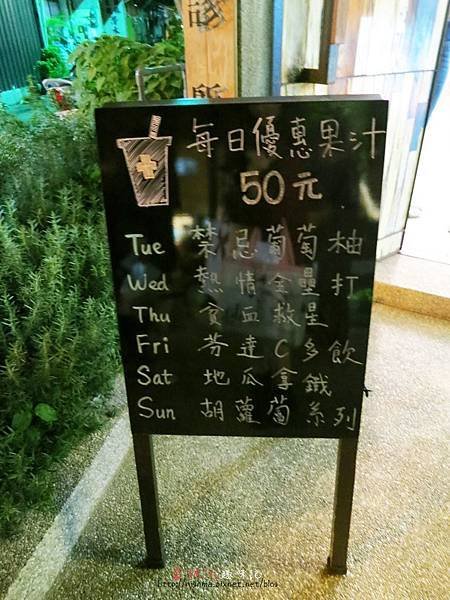 診所
每日優惠果汁
50元
Tue 禁忌葡萄柚
Wed 熱情金壘打
Thu 貧血救星
Fri 芬達C多飲
Sat 地瓜拿鐵
Sun 胡蘿蔔系列